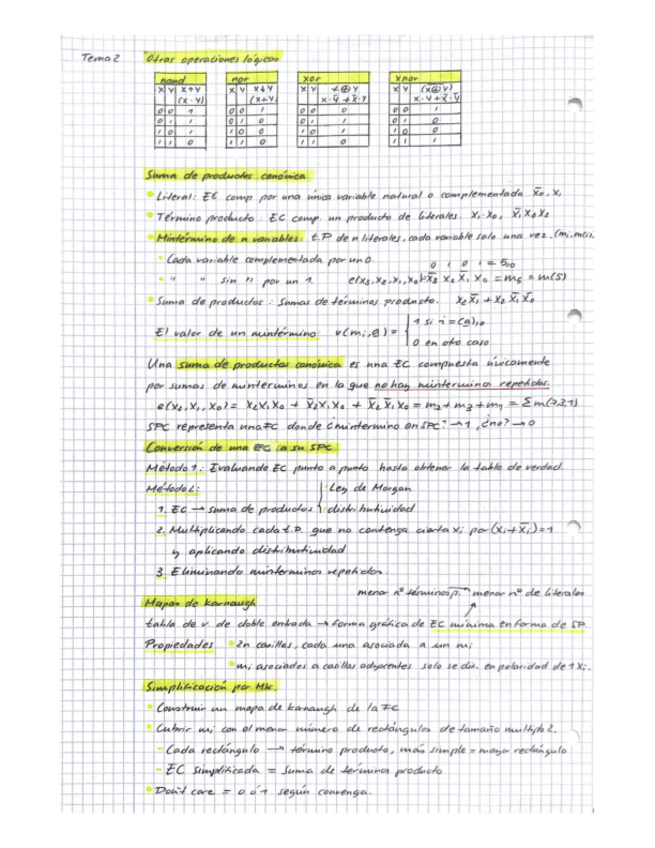 Tema 2 Otras operaciones lógicas
nand nor xor xnor
x y x↑y x y x↓y x y x⊕y x y (x⊕y)
(x·y) (x+y) x·ȳ+x̄·y x·y+x̄·ȳ
0 0 1 0 0 1 0 0 0 0 0 1
0 1 1 0 1 0 0 1 1 0 1 0
1 0 1 1 0 0 1 0 1 1 0 0
1 1 0 1 1 0 1 1 0 1 1 1
Suma de productos canónica
• Literal: EC comp por una única variable natural o complementada x̄₀, x₁
• Término producto: EC comp. un producto de literales x₁·x₀, x̄₁x₀x₂
• Mintérmino de n variables: t.P de n literales, cada variable solo una vez.
• Cada variable complementada por un 0. 0 1 0 1 = 5₁₀
• " " sin " por un 1. e(x₃,x₂,x₁,x₀)=x̄₃ x₂ x̄₁ x₀ = m₅ = m(5)
• Suma de productos: Sumas de términos producto. x₂x̄₁+x₂x̄₁x̄₀
El valor de un mintérmino: v(mᵢ,a) = { 1 si i=(a)₁₀
0 en otro caso
Una suma de productos canónica es una EC compuesta únicamente
por sumas de mintérminos en la que no hay mintérminos repetidos.
e(x₂,x₁,x₀)= x₂x₁x₀ + x̄₂x₁x₀ + x̄₂x̄₁x₀ = m₇+m₃+m₁ = Σm(7,3,1)
SPC representa una FC donde ¿mintermino en SPC? → 1, ¿no? → 0
Conversión de una EC a su SPC
Método 1: Evaluando EC punto a punto hasta obtener la tabla de verdad.
Método 2: • Ley de Morgan
1. EC → suma de productos • distributividad
2. Multiplicando cada t.P. que no contenga cierta xᵢ por (xᵢ+x̄ᵢ)=1
y aplicando distributividad
3. Eliminando minterminos repetidos.
menor nº términos p. → menor nº de literales
Mapas de Karnaugh
tabla de v. de doble entrada → forma gráfica de EC mínima en forma de SP.
Propiedades • 2n casillas, cada una asociada a un mi
• mi asociados a casillas adyacentes solo se dif. en polaridad de 1 xᵢ.
Simplificación por MK.
• Construir un mapa de karnaugh de la FC
• Cubrir mi con el menor número de rectángulos de tamaño multiplo 2.
- Cada rectángulo → término producto, más simple = mayor rectángulo
- EC simplificada = Suma de terminos producto
• Don't care = 0 ó 1 según convenga.